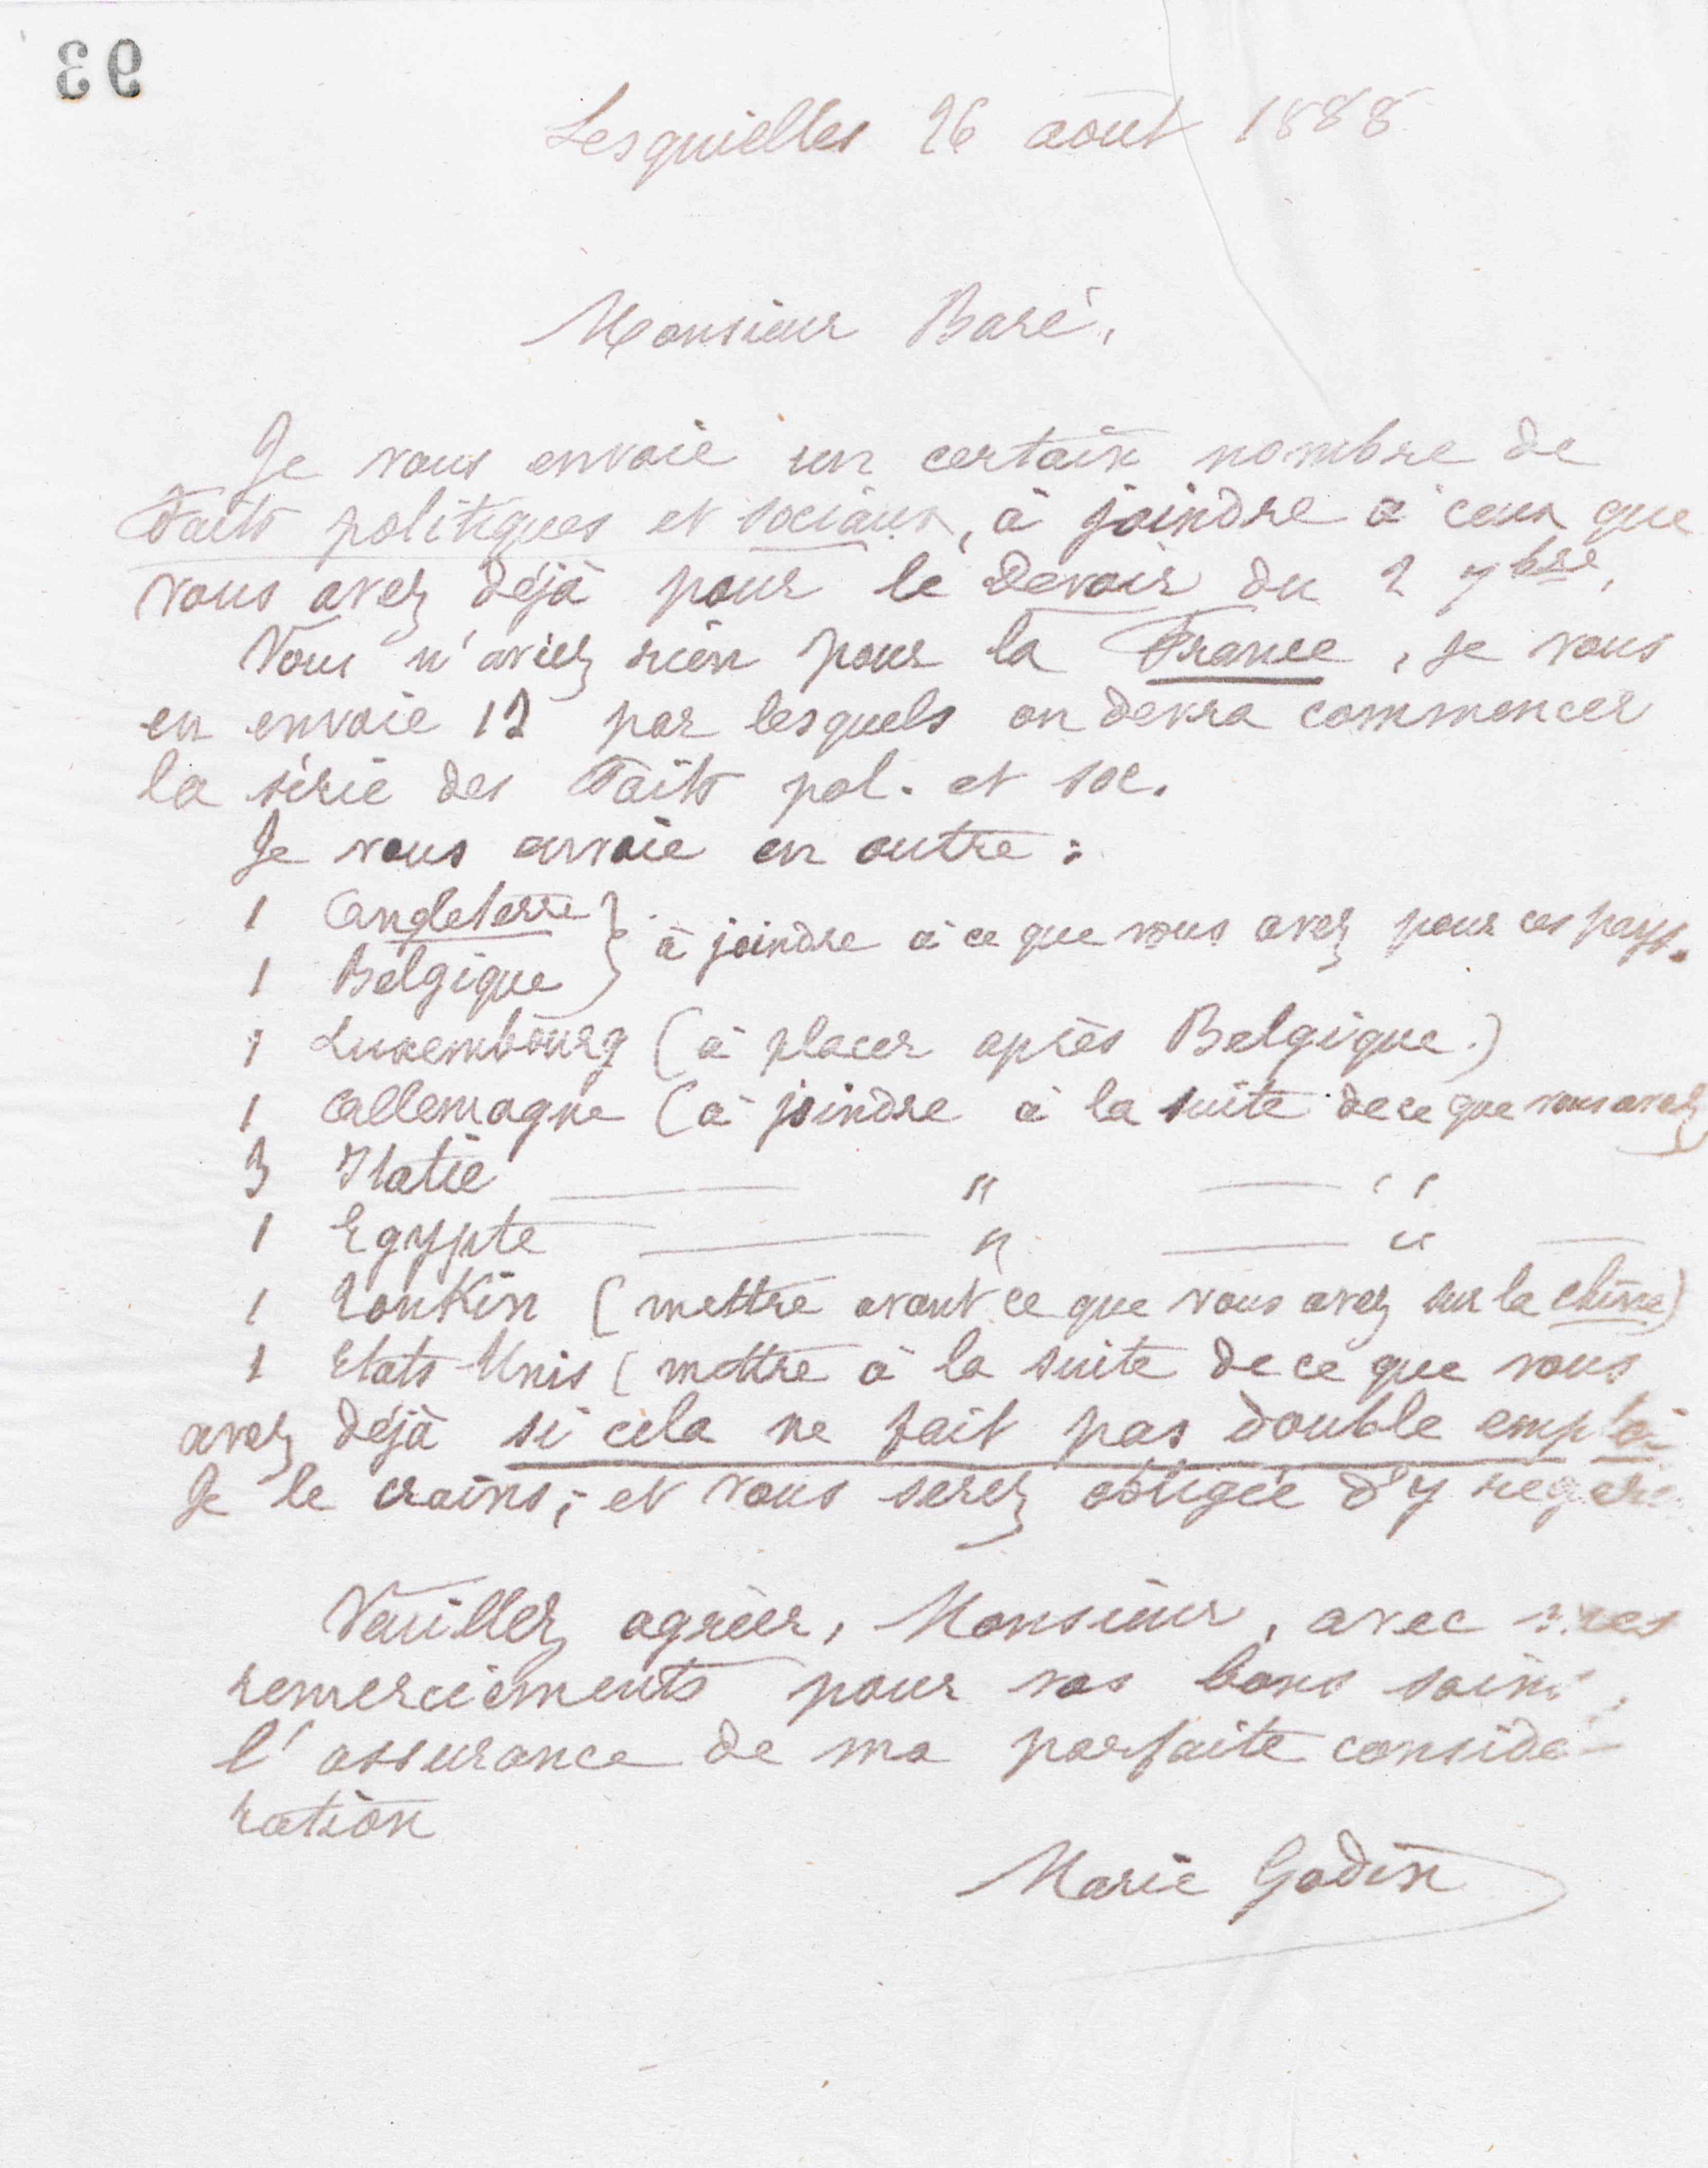 93
Lesquielles 26 août 1888
Monsieur Baré,
Je vous envoie un certain nombre de
Faits politiques et sociaux, à joindre à ceux que
vous avez déjà pour le Devoir du 2 7bre.
Vous n'aviez rien pour la France, je vous
en envoie 12 par lesquels on devra commencer
la série des Faits pol. et soc.
Je vous envoie en outre :
1 Angleterre } à joindre à ce que vous avez pour ces pays.
1 Belgique }
1 Luxembourg (à placer après Belgique.)
1 Allemagne (à joindre à la suite de ce que vous avez)
3 Italie — " — "
1 Egypte — " — " —
1 Tonkin (mettre avant ce que vous avez sur la Chine)
1 Etats-Unis (mettre à la suite de ce que vous
avez déjà si cela ne fait pas double emploi
Je le crains ; et vous serez obligée d'y
Veuillez agréer, Monsieur, avec mes
remerciements pour vos bons soins,
l'assurance de ma parfaite considé-
ration
Marie Godin